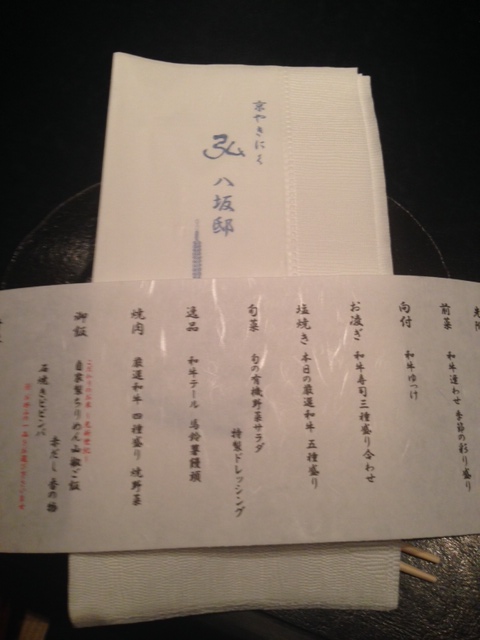 京やきにく
弘
八坂邸
前菜 和牛達わせ 季節の彩り盛り
向付 和牛ゆっけ
お凌ぎ 和牛寿司三種盛り合わせ
塩焼き 本日の厳選和牛 五種盛り
旬菜 旬の有機野菜サラダ
特製ドレッシング
逸品 和牛テール 馬鈴薯饅頭
焼肉 厳選和牛 四種盛り 焼野菜
御飯
自家製ちりめん山椒ご飯
赤だし 香の物
石焼きビビンバ